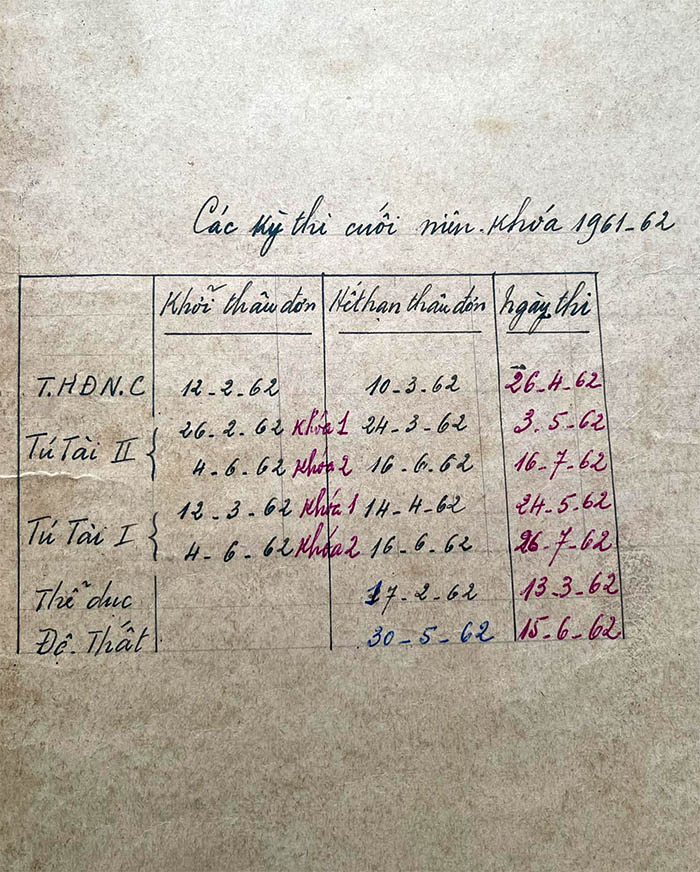 Các kỳ thi cuối niên-khóa 1961-62
Khởi thâu đơn Hết hạn thâu đơn Ngày thi
T.H.Đ.N.C 12-2-62 10-3-62 26-4-62
Tú Tài II { 26-2-62 Khóa 1 24-3-62 3-5-62
4-6-62 Khóa 2 16-6-62 16-7-62
Tú Tài I { 12-3-62 Khóa 1 14-4-62 24-5-62
4-6-62 Khóa 2 16-6-62 26-7-62
Thể dục 17-2-62 13-3-62
Đệ-Thất 30-5-62 15-6-62